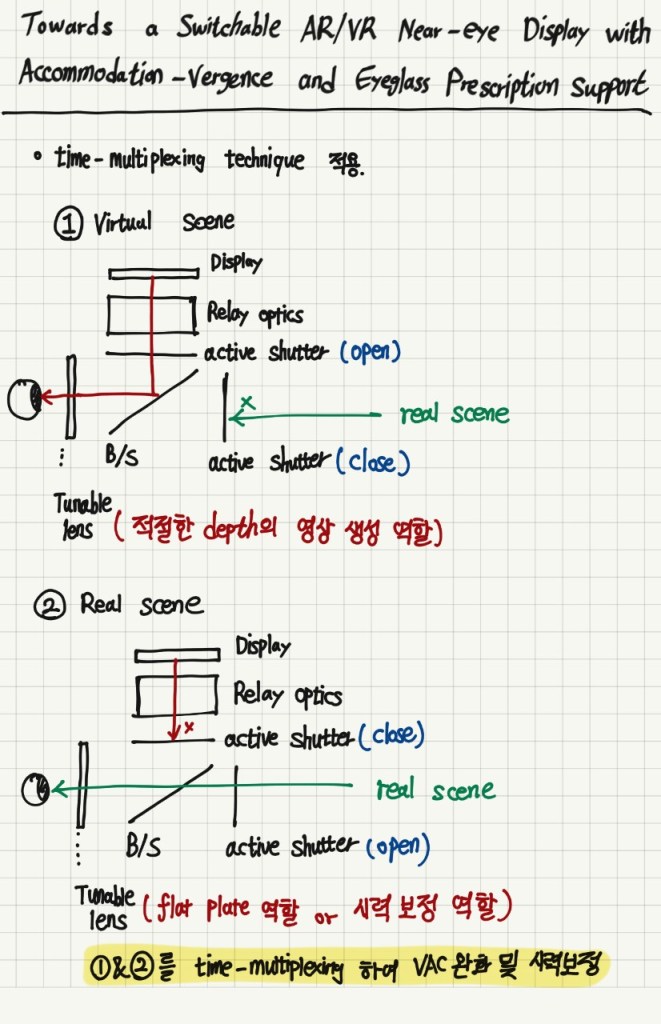 Towards a Switchable AR/VR Near-eye Display with
Accommodation-Vergence and Eyeglass Prescription Support
• time-multiplexing technique 적용.
① Virtual scene
Display
Relay optics
active shutter (open)
x
real scene
B/S
active shutter (close)
Tunable
lens (적절한 depth의 영상 생성 역할)
② Real scene
Display
Relay optics
x
active shutter (close)
real scene
B/S
active shutter (open)
Tunable
lens (flat plate 역할 or 시력 보정 역할)
①&②를 time-multiplexing 하여 VAC 완화 및 시력보정